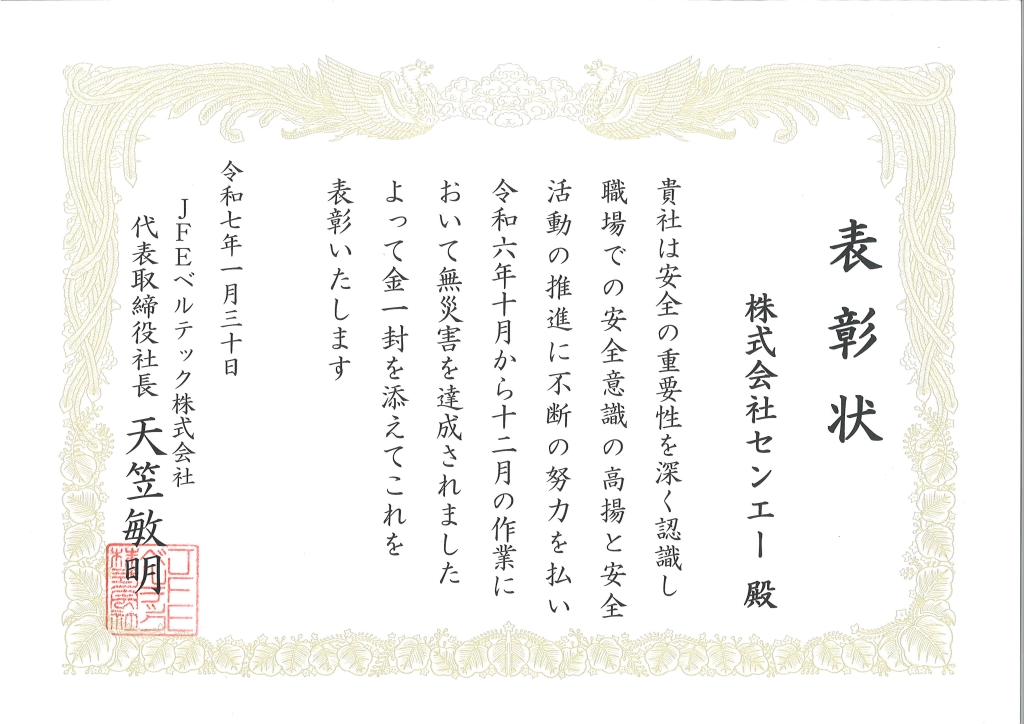 表彰状
株式会社センエー 殿
貴社は安全の重要性を深く認識し
職場での安全意識の高揚と安全
活動の推進に不断の努力を払い
令和六年十月から十二月の作業に
おいて無災害を達成されました
よって金一封を添えてこれを
表彰いたします
令和七年一月三十日
JFEベルテック株式会社
代表取締役社長 天笠敏明
JFE
ベルテック
株式会社